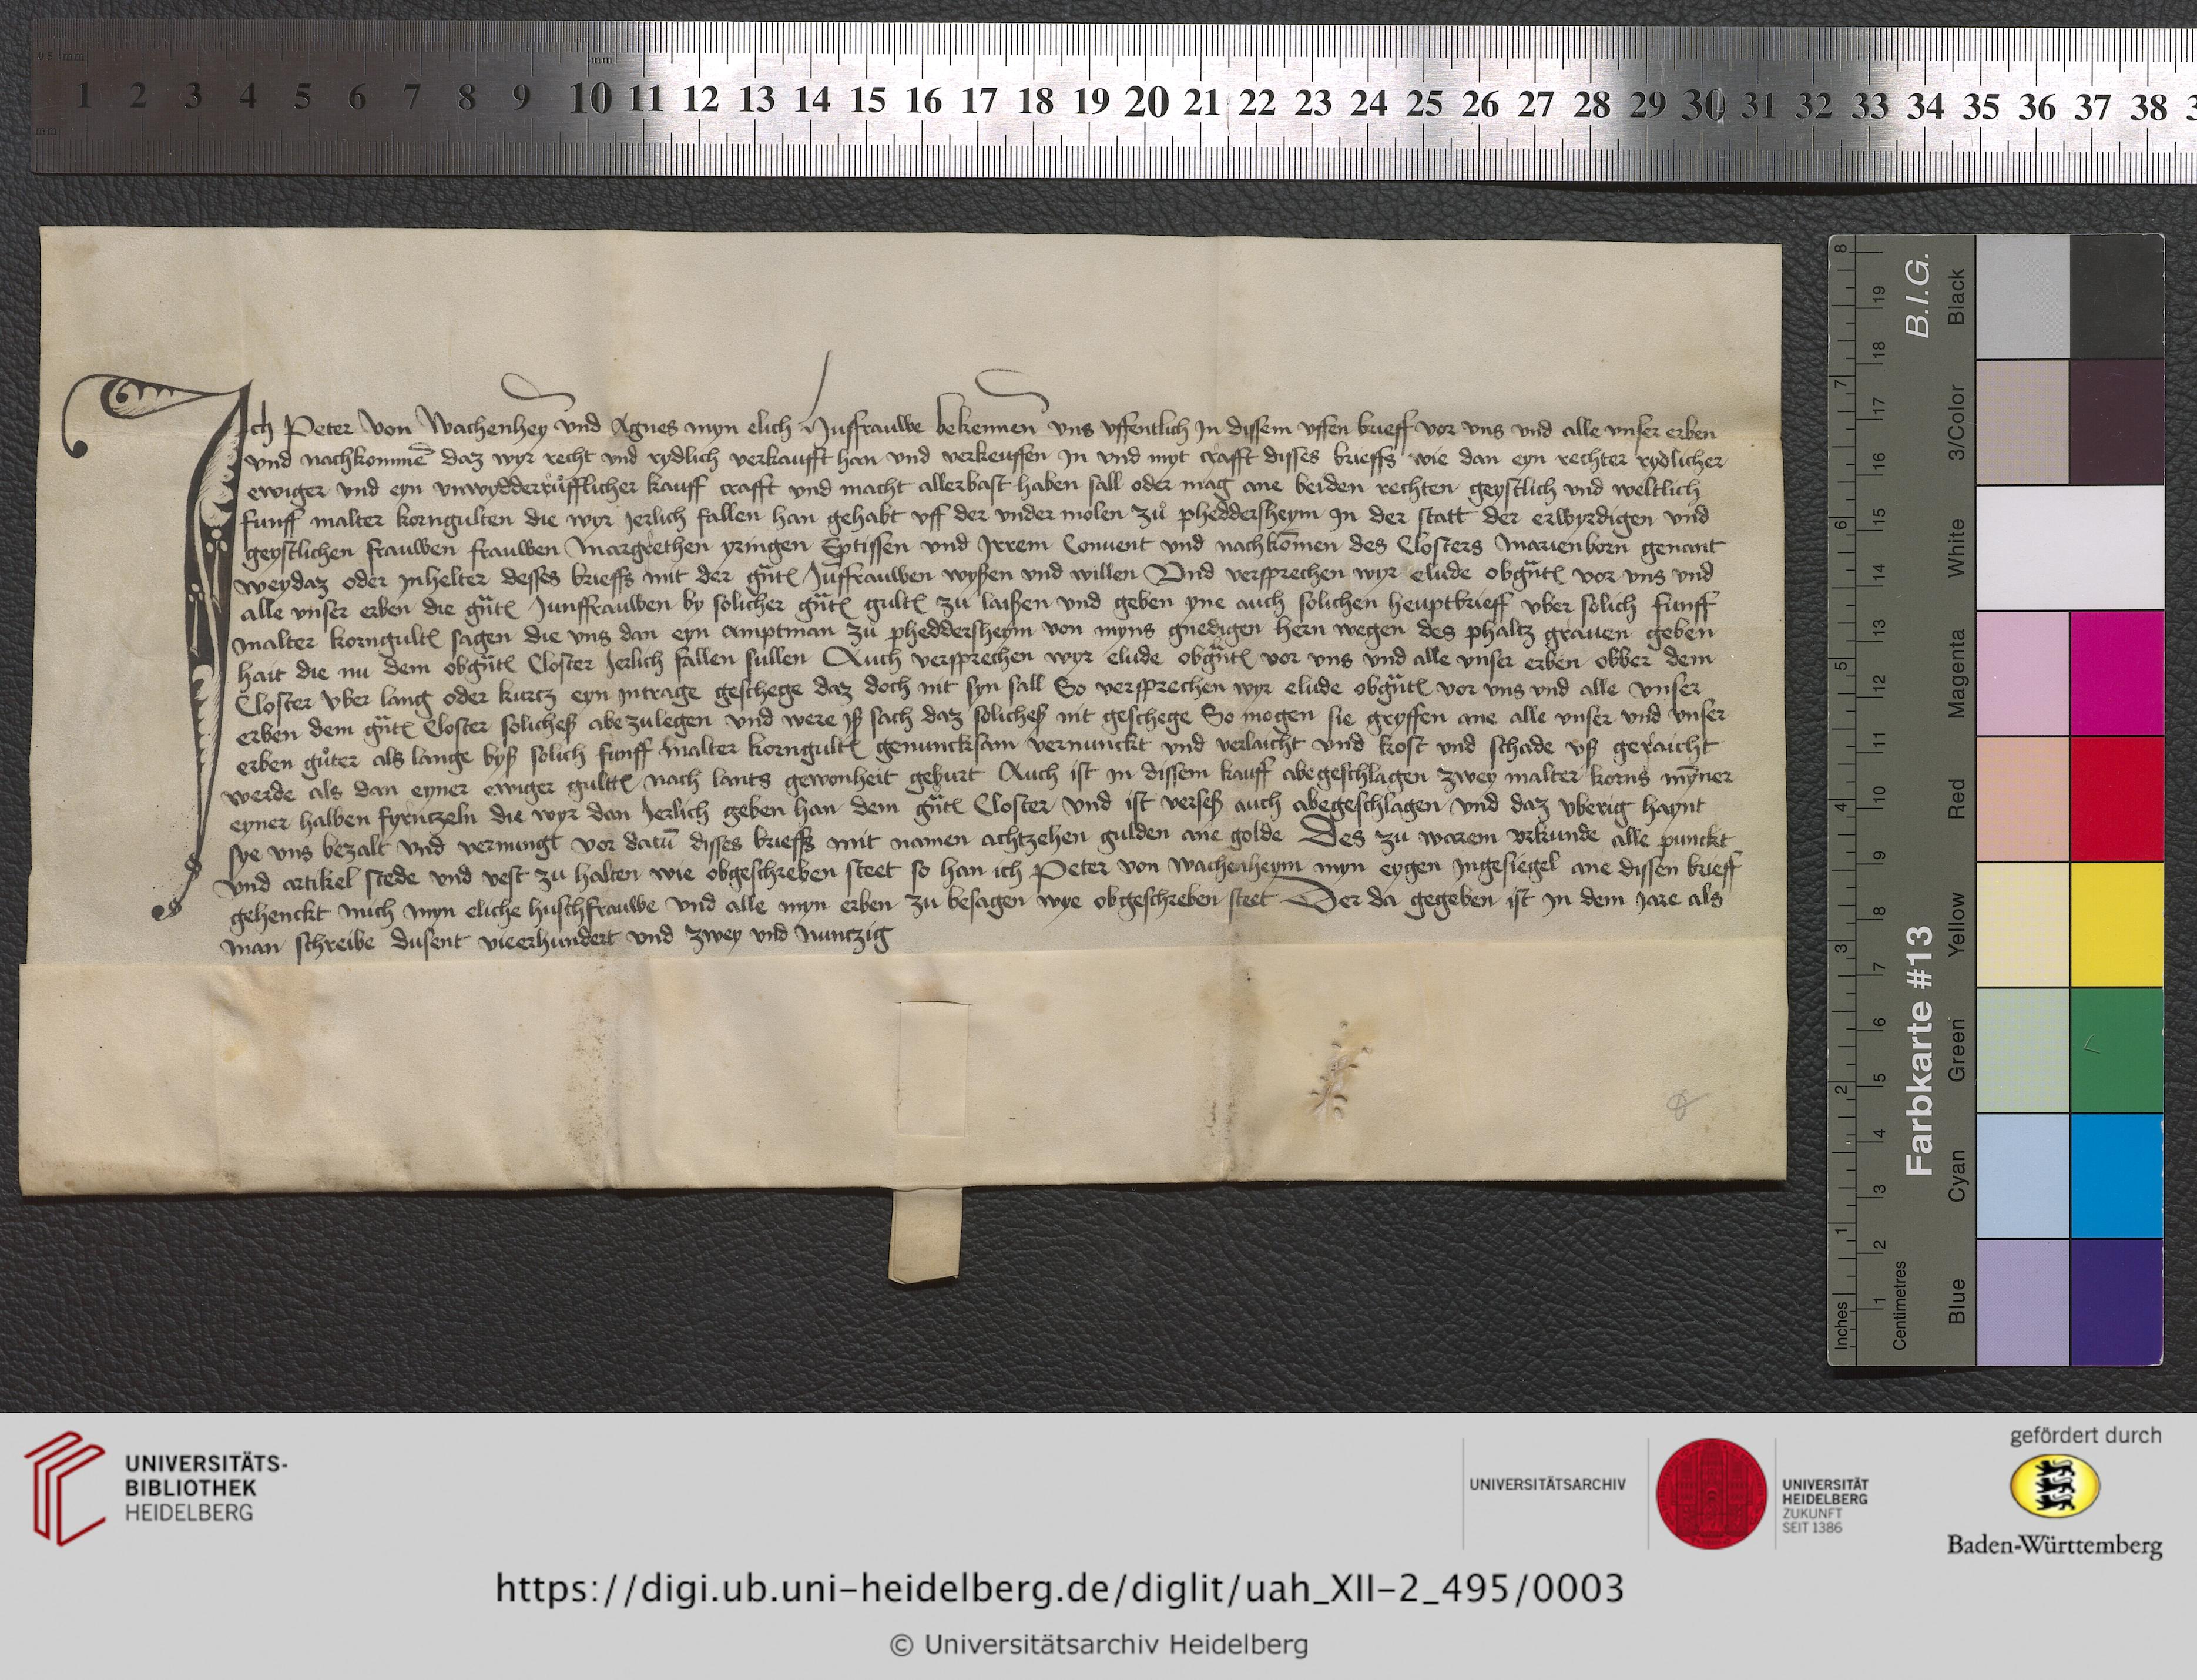 Ich Peter von Wachenhey vnd Agnes myn elich Juffrauwe bekennen vns vffentlich In dissem vffen brieff vor vns vnd alle vnser erben
vnd nachkommē daz wyr recht vnd rydlich verkaufft han vnd verkeuffen In vnd myt crafft disses brieffs wie dan eyn rechter rydlicher
ewiger vnd eyn vnwydderrůfflicher kauff crafft vnd macht allerbast haben sall oder mag ane beiden rechten geystlich vnd weltlich
funff malter korngulten die wyr Jerlich fallen han gehabt vff der vnder molen zů pheddersheym In der statt der erwyrdigen vnd
geystlichen frauwen frauwen Margrethen yringen Eptissen vnd Irrem Conuent vnd nachkōmen des Closters Marienborn genant
weydaz oder Inhelter desses brieffs mit der gn̄t Juffrauwen wyßen vnd willen Vnd versprechen wyr elude obgn̄t vor vns vnd
alle vnser erben die gn̄t Junffrauwen by solicher gn̄t gult zu laißen vnd geben yne auch solichen heuptbrieff vber solich funff
malter korngult sagen die vns dan eyn amptman zů pheddersheym von myns gnedigen hern wegen des phaltz grauen geben
hait die nu dem obgn̄t Closter Jerlich fallen sullen Auch versprechen wyr elude obgn̄t vor vns vnd alle vnser erben obber dem
Closter vber lang oder kurtz eyn Intrage geschege daz doch nit syn sall So versprechen wyr elude obgn̄t vor vns vnd alle vnser
erben dem gn̄t Closter solicheß abe zulegen vnd were yß sach daz solicheß nit geschege So mogen sie gryffen ane alle vnser vnd vnser
erben gůter als lange byß solich funff malter korngult genuncksam vernunckt vnd verlaicht vnd kost vnd schade vß geraicht
werde als dan eyner ewiger gultt nach lants gewonheit geburt Auch ist in dissem kauff abegeschlagen zwey malter korns myner
eyner halben fyrntzeln die wyr dan Jerlich geben han dem gn̄t Closter vnd ist verseß auch abegeschlagen vnd daz vberig haynt
sye vns bezalt vnd vernungt vor datū disses brieffs mit namen achtzehen gulden ane golde Des zu warem vrkunde alle punckt
vnd artikel stede vnd vest zu halten wie obgeschreben steet so han ich Peter von wachenheym myn eygen Ingesiegel ane dissen brieff
gehenckt mich myn eliche huschfrauwe vnd alle myn erben zu besagen wye obgeschreben steet Der da gegeben ist In dem Jare als
man schreibe dusent vieerhundert vnd zwey vnd Nuntzig
mm
1 2 3 4 5 6 7 8 9 10 11 12 13 14 15 16 17 18 19 20 21 22 23 24 25 26 27 28 29 30 31 32 33 34 35 36 37 38
mm
B.I.G.
Farbkarte #13
Black
3/Color
White
Magenta
Red
Yellow
Green
Cyan
Blue
Centimetres
1 2 3 4 5 6 7 8 9 10 11 12 13 14 15 16 17 18 19
Inches
1 2 3 4 5 6 7 8
UNIVERSITÄTS-
BIBLIOTHEK
HEIDELBERG
UNIVERSITÄTSARCHIV
UNIVERSITÄT
HEIDELBERG
ZUKUNFT
SEIT 1386
gefördert durch
Baden-Württemberg
https://digi.ub.uni-heidelberg.de/diglit/uah_XII-2_495/0003
© Universitätsarchiv Heidelberg